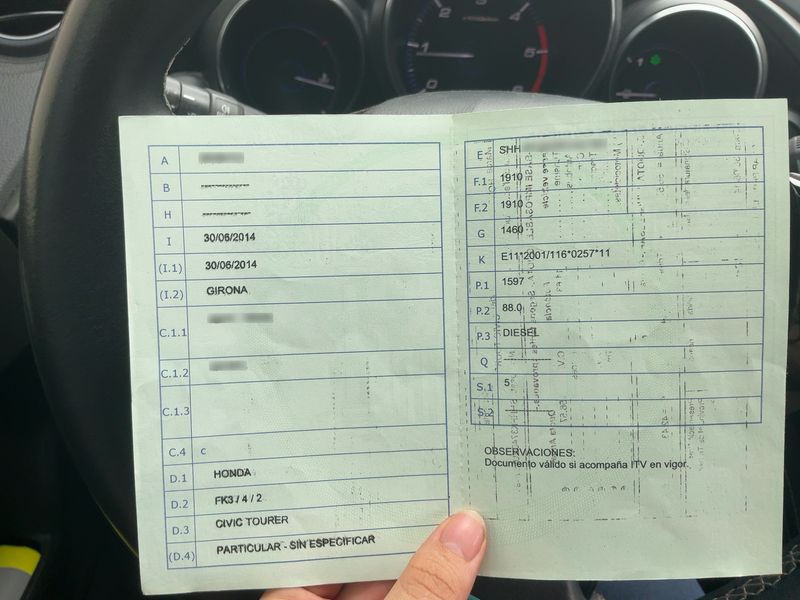 A
B
H
I 30/06/2014
(I.1) 30/06/2014
(I.2) GIRONA
C.1.1
C.1.2
C.1.3
C.4 c
D.1 HONDA
D.2 FK3 / 4 / 2
D.3 CIVIC TOURER
(D.4) PARTICULAR - SIN ESPECIFICAR
E SHH
F.1 1910
F.2 1910
G 1460
K E11*2001/116*0257*11
P.1 1597
P.2 88.0
P.3 DIESEL
Q
S.1 5
S.2
OBSERVACIONES:
Documento válido si acompaña ITV en vigor.